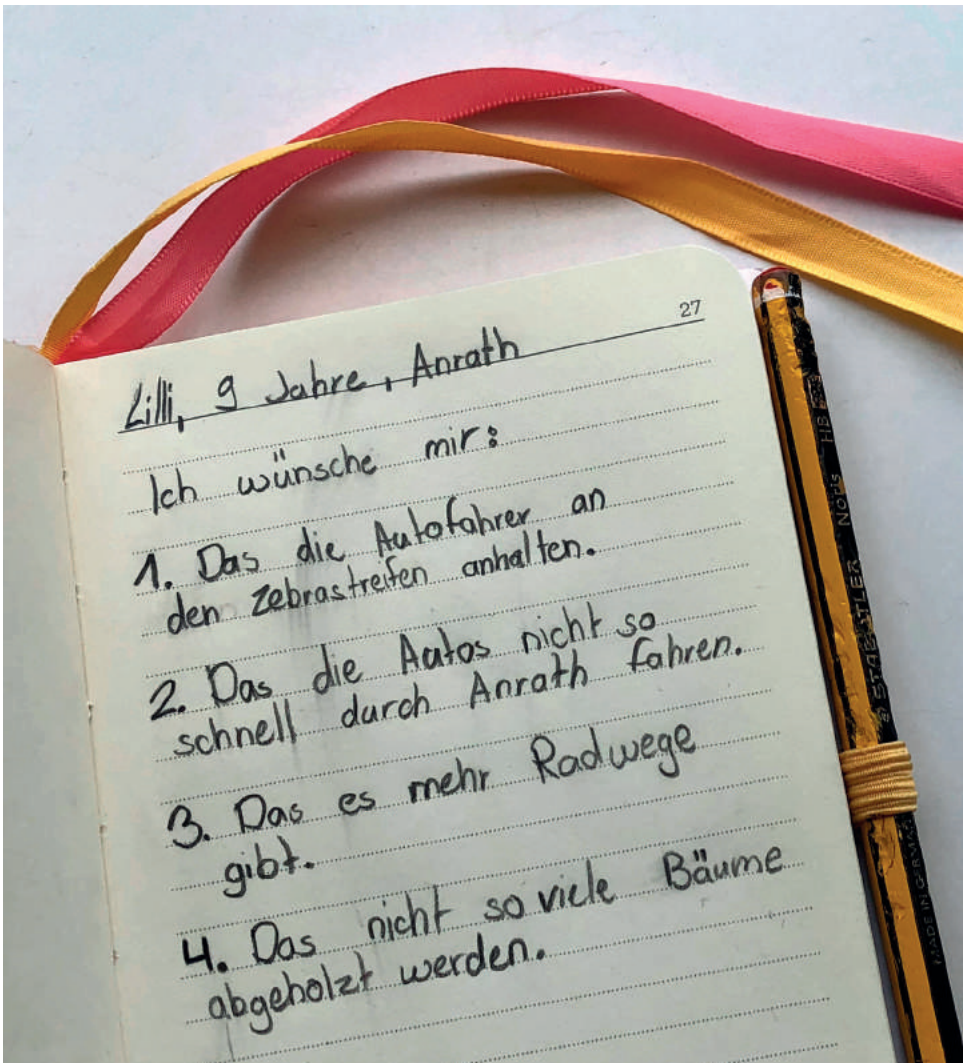 27
Lilli, 9 Jahre, Anrath
Ich wünsche mir:
1. Das die Autofahrer an
den Zebrastreifen anhalten.
2. Das die Autos nicht so
schnell durch Anrath fahren.
3. Das es mehr Radwege
gibt.
4. Das nicht so viele Bäume
abgeholzt werden.
STAEDTLER Noris HB
MADE IN GERMANY